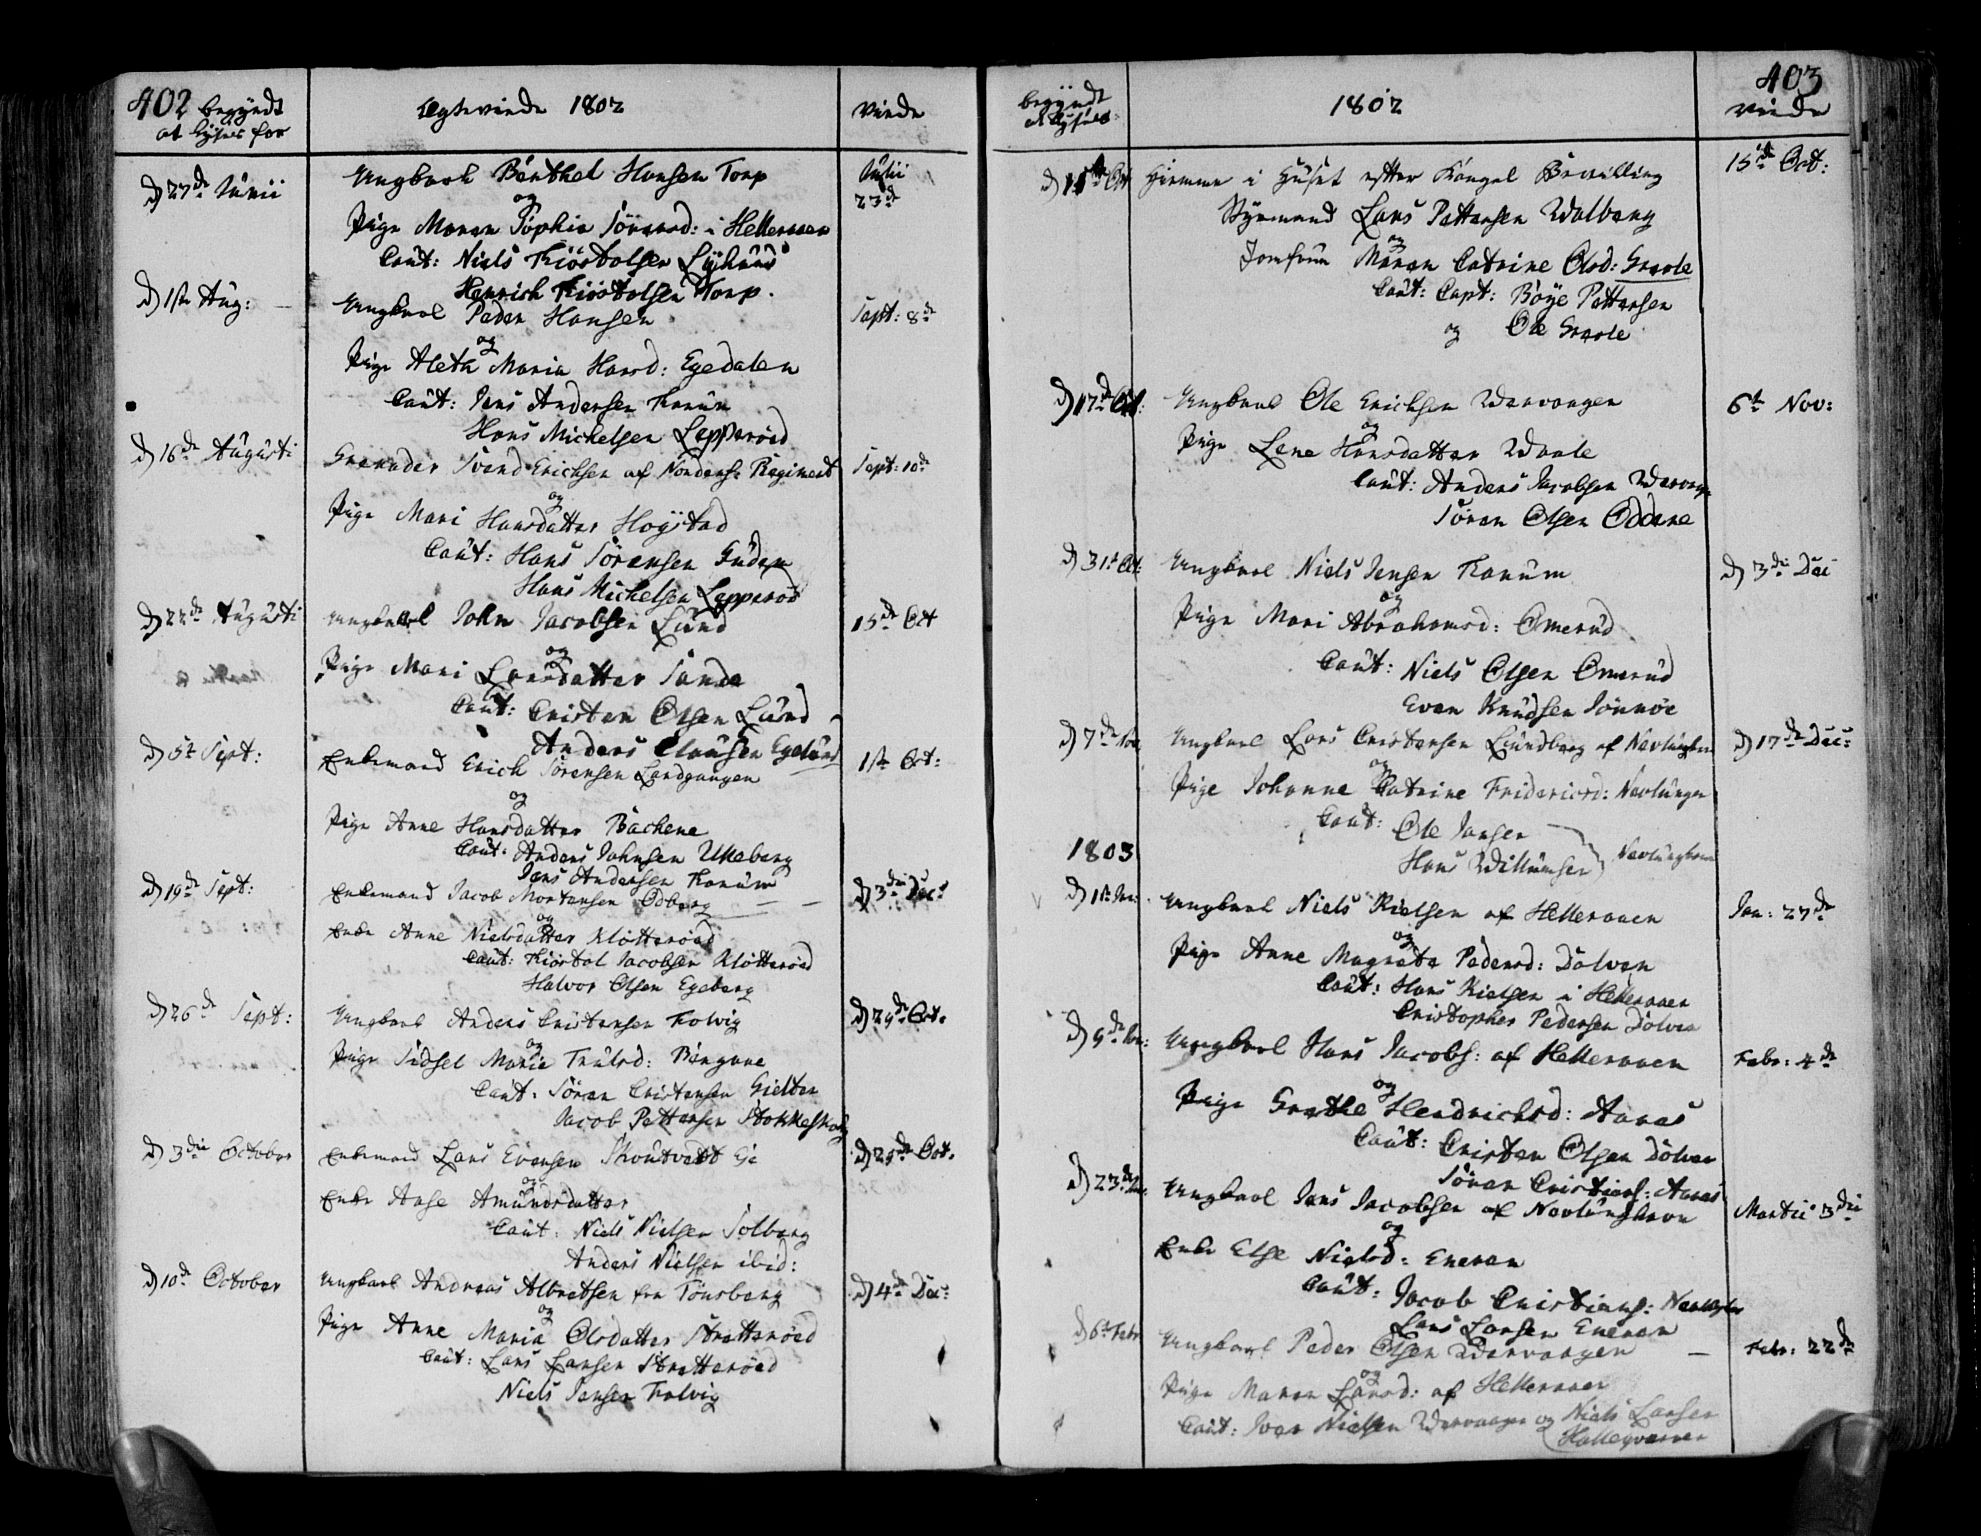 402 begyndt
at lyses for
Egteviede 1802
viede
d 27de Junii
Ungkarl Berthel Hansen Torp
Julii
23de
og
Pige Maren Sophia Sörensd: i Helleraaen
Caut: Niels Kiöstolsen
Henrich Kiöstolsen Torp.
d 1ste Aug:
Ungkarl Peder Hansen
Sept: 8de
og
Pige Aleth Maria Hansd: Egedalen
Caut: Jens Andersen Kanum
Hans Michelsen Lepperöed
d 16de Augusti
Granader Svend Erichsen af Nordenf: Regiment
Sept: 10de
og
Pige Mari Hansdatter Hogstad
Caut: Hans Sörensen Gudem
Hans Michelsen Lepperöd
d 22de Augusti
Ungkarl John Jacobsen Lund
15de Oct
og
Pige Mari Larsdatter Sande
Caut: Cristen Olsen Lund
Anders Clausen Egelund
d 5te Sept:
Enkemand Erich Sörensen Landgangen
1ste Oct:
og
Pige Anne Hansdatter Bachene
Caut: Anders Johnsen Ulleberg
Jens Andersen Kanum
d 19de Sept:
Enkemand Jacob Mortensen Odberg
d 3die Dec:
og
Enke Anne Nielsdatter Klötteröed
Caut: Kiöstol Jacobsen Klötteröed
Halvor Olsen Egeberg
d 26de Sept:
Ungkarl Anders Cristensen Tholvig
d 29de Oct.
og
Pige Sidsel Maria Trulsd: Bergane
Caut: Sören Cristensen Gielter
Jacob Pettersen
d 3die October
Enkemand Lars Evensen Skoutvedt Eje
d 29de Oct.
og
Enke Anse Amundsdatter
Caut: Niels Nielsen Solberg
Anders Nielsen ibid:
d 10de October
Ungkarl Andreas Albretsen fra Tönsberg
d 4de Dec:
og
Pige Anne Maria Olsdatter Stratteröed
Caut: Lars Larsen Stratteröed
Niels Jensen Tholvig
begyndt
at lyses
1802
403
viede
d 15de Oct
Hiemme i Huset efter Kongel Bevilling
15de Oct:
Styrmand Lars Pettersen Walberg
og
Jomfrue Maren Catrine Olsd: Graole
Caut: Capt: Böye Pettersen
og Ole Graole
d 17de Oct:
Ungkarl Ole Erichsen Wervaagen
6te Nov:
og
Pige Lene Hansdatter Waale
Caut: Anders Jacobsen
Sören Olsen Oddane
d 31te Oct:
Ungkarl Niels Jensen Kanum
d 3die Dec
og
Pige Mari Abrahamsd: Omerud
Caut: Niels Olsen Omerud
Even Knudsen Jönnöe
d 7de Nov
Ungkarl Lars Cristensen Lundberg af Navlunghavn
d 17de Dec:
og
Pige Johanne Catrine Fridericsd: Navlungen
Caut: Ole Jansen
Hans Willumsen Navlunghavn
1803
d 1ste Jan:
Ungkarl Niels Kielsen af Helleraaen
Jan: 27de
og
Pige Anne Magrete Pedersd: Dolven
Caut: Hans Kielsen i Helleraaen
Cristopher Pedersen Dolven
d 9de Jan:
Ungkarl Hans Jacobs: af Helleraaen
Febr: 4de
og
Pige Grethe Hendrichsd: Aaras
Caut: Cristen Olsen Dolven
Sören Cristians: Aaras
d 23de Jan:
Ungkarl Jens Jacobsen af Navlunghavn
Martii 3die
og
Enke Else Nielsd: Eneren
Caut: Jacob Cristians:
Lars Larsen Eneren
d 6te Febr
Ungkarl Peder Olsen Wervaagen
Febr: 22de
og
Pige Maren Larsd: af Helleraaen
Caut: Iver Nielsen Wervaagen og Niels Larsen